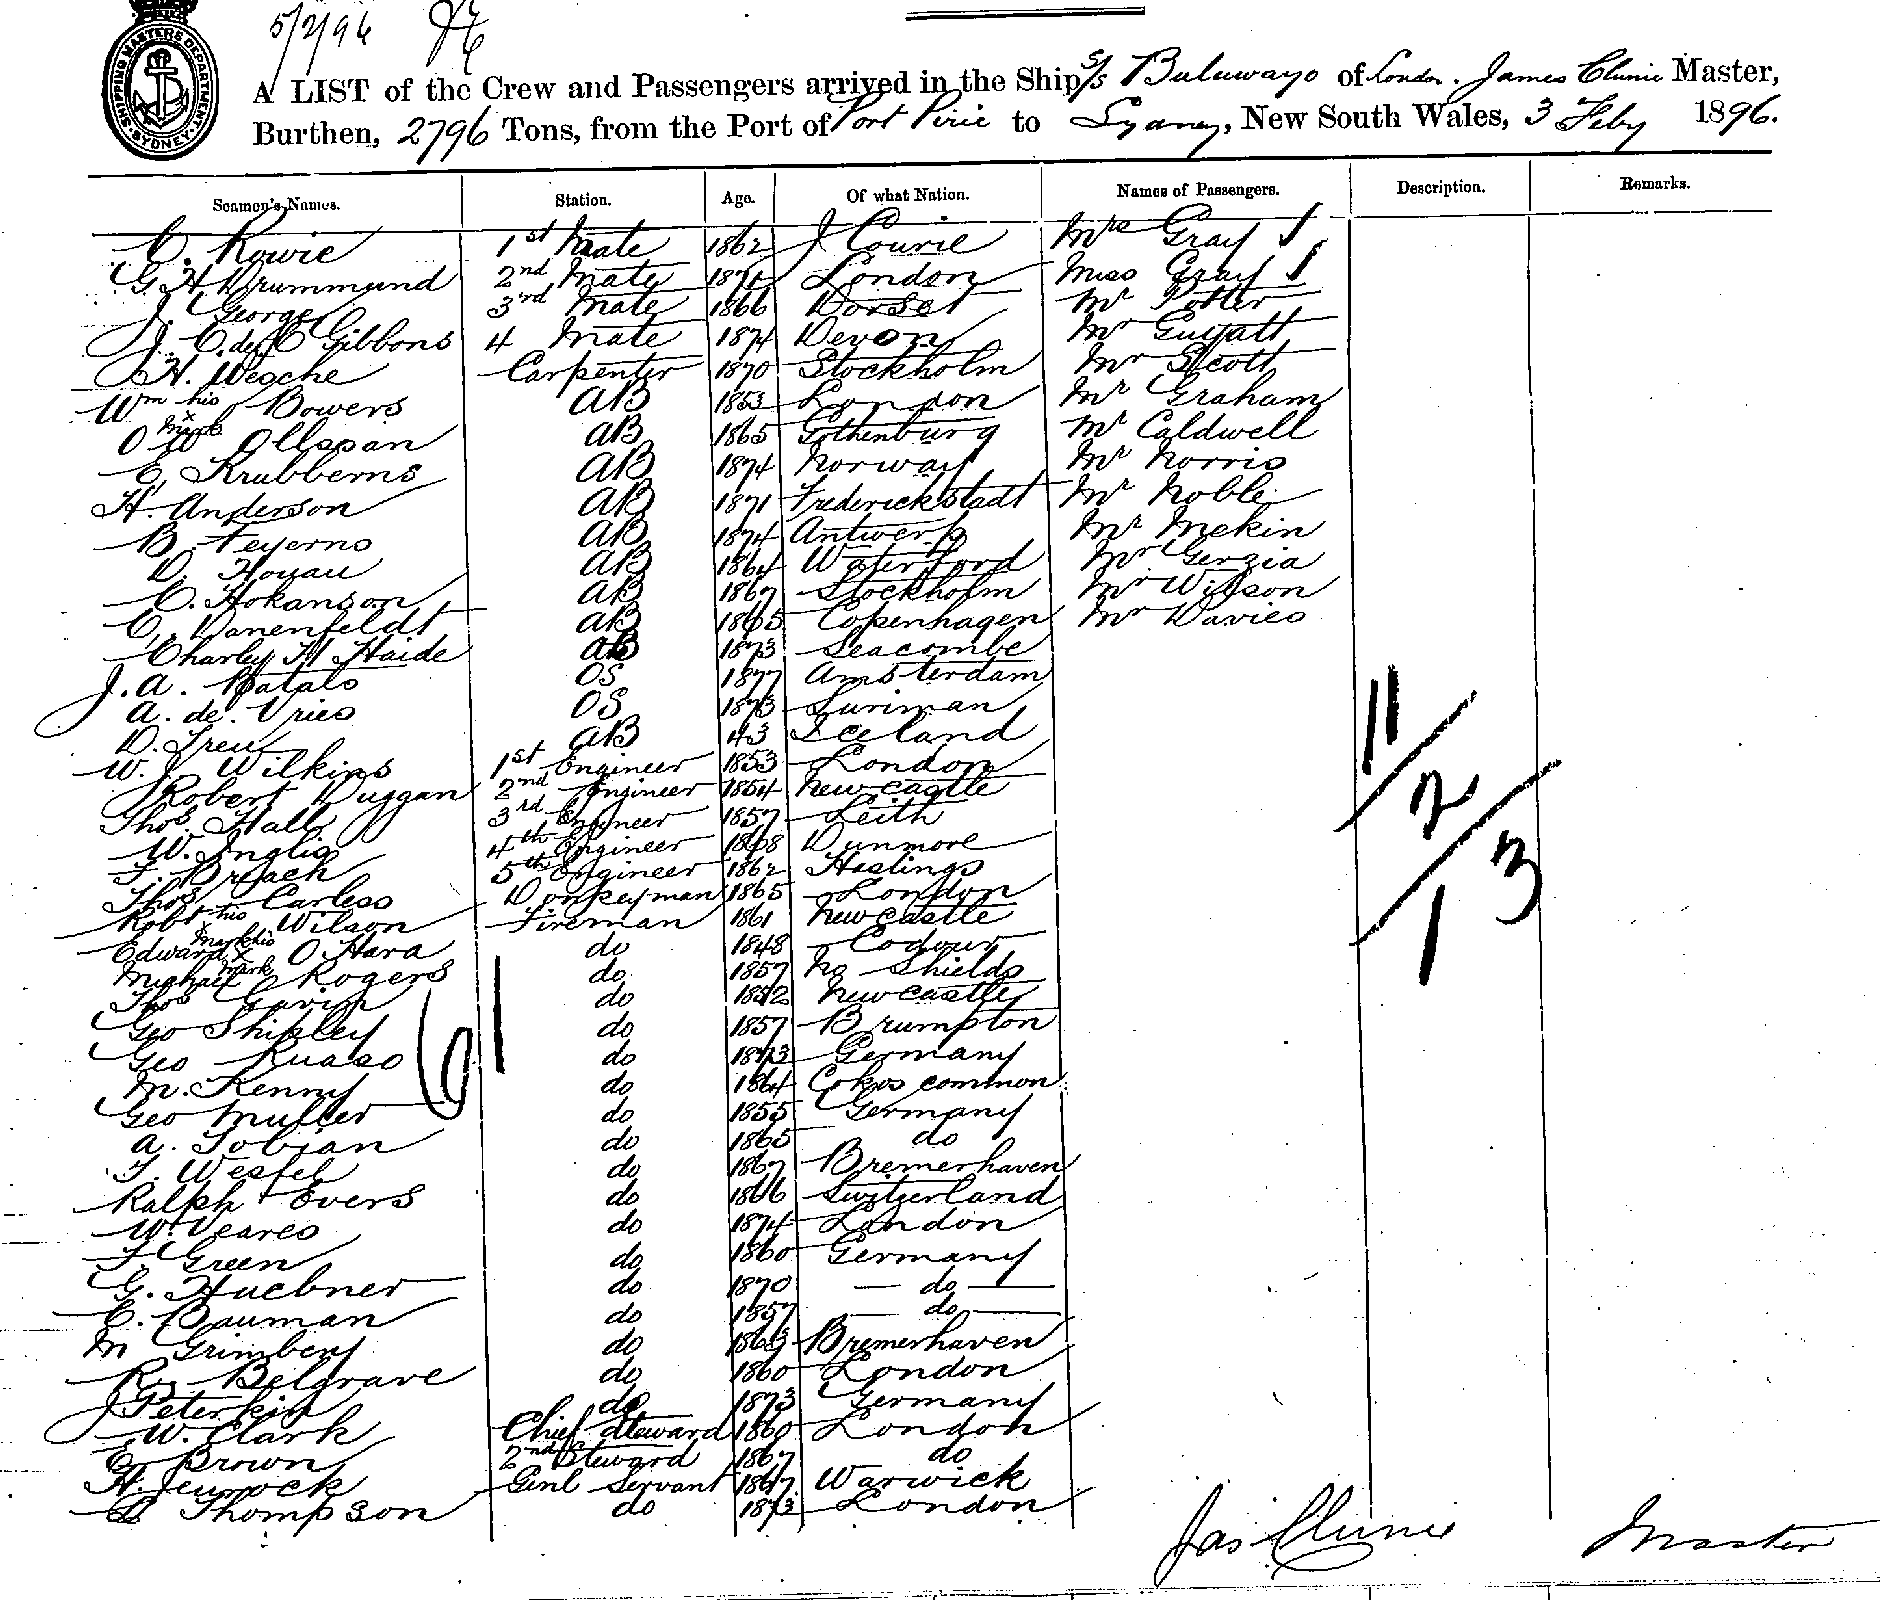 5/2/96
SHIPPING MASTERS DEPARTMENT SYDNEY
A LIST of the Crew and Passengers arrived in the Ship S/s Buluwayo of London. James Clunie Master,
Burthen, 2796 Tons, from the Port of Port Pirie to Sydney, New South Wales, 3 Feby 1896.
Seamen's Names. Station. Age. Of what Nation. Names of Passengers. Description. Remarks.
C. Rowie 1st Mate 1862 Mrs Gray
G. H. Drummund 2nd Mate London Miss Gray
J. George 3rd Mate 1866 Dorset Mr Potter
Gibbons 4 Mate 1874 Devon Mr Guyatt
H. Wesche Carpenter 1870 Stockholm Mr Scott
Wm his x mark Bowers AB 1853 London Mr Graham
Ollspan AB 1865 Gothenburg Mr Caldwell
C. Krubberns AB 1874 Norway Mr Norris
H. Anderson AB 1871 Frederickstadt Mr Noble
B. Feyerns AB 1874 Antwerp Mr Mekin
D. AB 1864 Waterford Mr Gerzia
C. Hokanson AB 1867 Stockholm Mr Wilson
C. Danenfeldt AB 1865 Copenhagen Mr Davies
Charley H Haide AB 1873 Seacombe
J. A. OS 1877 Amsterdam
A. de Vries OS 1873 Suriman
D. Treu AB 43 Iceland
W. J. Wilkins 1st Engineer 1853 London
Robert Duggan 2nd Engineer 1854 Newcastle
Thos. Hall 3rd Engineer 1857 Leith
W. Inglis 4th Engineer 1868 Dunmore
F. Broach 5th Engineer 1862 Hastings
Thos Carless Donkeyman 1865 London
Robt his x mark Wilson Fireman 1861 Newcastle
Edward his x mark O Hara do 1848
Michael Rogers do 1857 No Shields
Thos Gavin do Newcastle
Geo Shipley do 1857 Brumpton
Geo Kuaso do 1873 Germany
M. Kenny do 1864 common
Geo Muller do 1855 Germany
A. Tobian do 1865 do
F. Wesfel do 1867 Bremerhaven
Ralph Evers do 1866 Switzerland
W. Veares do 1874 London
F. Green do 1860 Germany
G. Huebner do 1870 do
C. Bauman do 1857 do
M Grimberg do 1863 Bremerhaven
Belgrave do 1860 London
J Peterkin do 1873 Germany
W. Clark Chief Steward 1860 London
E. Brown 2nd Steward 1867 do
H. Genl Servant 1867 Warwick
Thompson do 1873 London
11
2
13
61
Jas Clunie Master